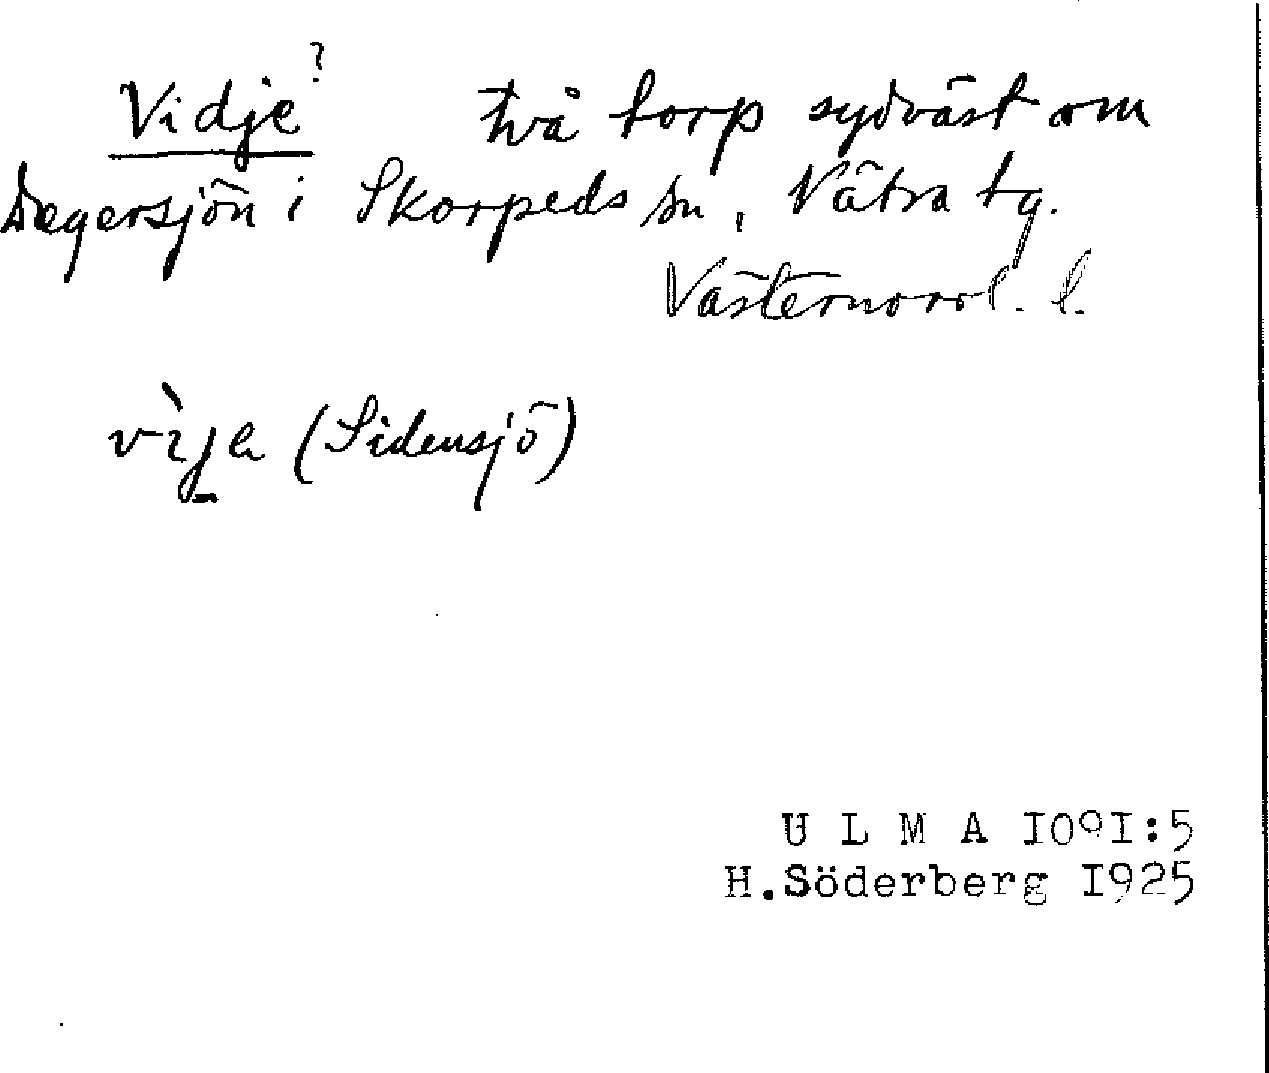 Vidje? två torp sydväst om
Degersjön i Skorpeds sn, Nätra tg.
Västernorrl. l.
(Sidensjö)
U L M A I091:5
H.Söderberg I925